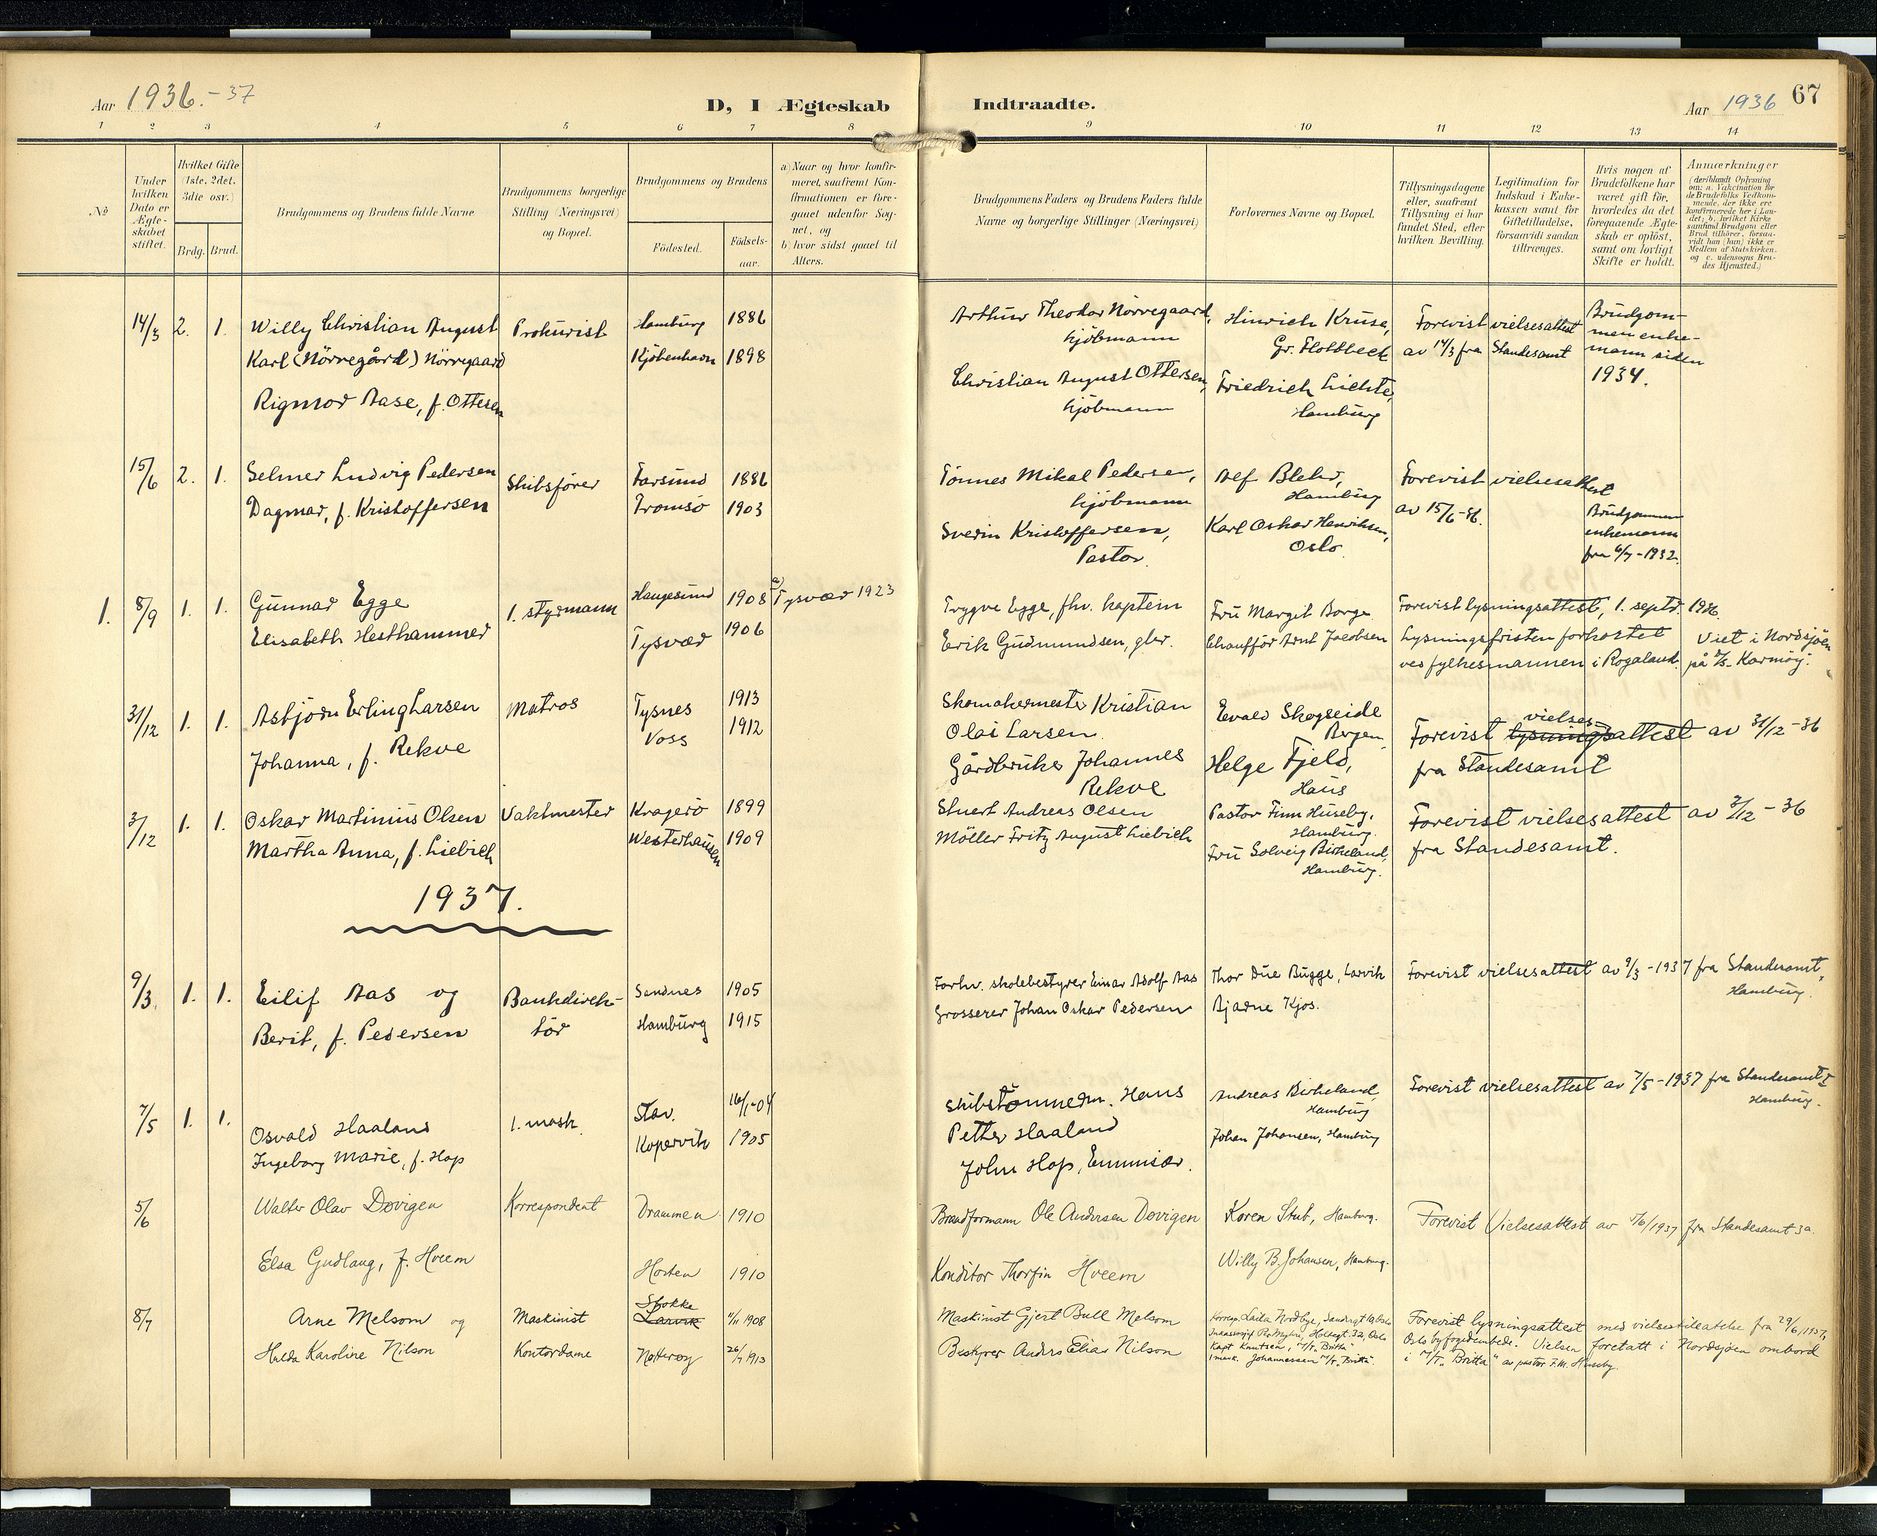 Aar 1936.-37
D, I Ægteskab
Indtraadte.
Aar 1936
67
1 2 3 4 5 6 7 8 9 10 11 12 13 14
No
Under hvilken Dato er Ægteskabet stiftet.
Hvilket Gifte (1ste, 2det, 3die osv.)
Brdg. Brud.
Brudgommens og Brudens fulde Navne
Brudgommens borgerlige Stilling (Næringsvei) og Bopæl.
Brudgommens og Brudens
Fødested.
Fødselsaar.
a) Naar og hvor konfirmeret, saafremt Konfirmationen er foregaaet udenfor Sognet, og
b) hvor sidst gaaet til Alters.
Brudgommens Faders og Brudens Faders fulde Navne og borgerlige Stillinger (Næringsvei)
Forlovernes Navne og Bopæl.
Tillysningsdagene eller, saafremt Tillysning ei har fundet Sted, efter hvilken Bevilling.
Legitimation for Indskud i Enkekassen samt for Giftetilladelse, forsaavidt saadan tiltrænges.
Hvis nogen af Brudefolkene har været gift før, hvorledes da det foregaaende Ægteskab er opløst, samt om lovligt Skifte er holdt.
Anmerkninger
(deriblandt Oplysning om: a. Vakcination for de Brudefolks Vedkommende, der ikke ere konfirmerede her i Landet; b. hvilket Kirkesamfund Brudgom eller Brud tilhører, forsaavidt han (hun) ikke er Medlem af Statskirken, og c. udensogns Brudes Hjemsted.)
14/3 2. 1. Willy Christian August Prokurist Hamburg 1886
Karl (Nörregård) Nörregaard Kjöbenhavn 1898
Rigmor Aase, f. Ottesen
Arthur Theodor Nörregaard,
kjöbmann
Christian August Ottersen,
kjöbmann
Hinrich Kruse,
Gr. Flottbeck
Friedrich Lichte,
Hamburg
Forevist vielsesattest
av 14/3 fra Standesamt
Brudgommen enkemann siden
1934.
15/6 2. 1. Selmer Ludvig Pedersen Skibsfører Farsund 1886
Dagmar, f. Kristoffersen Tromsö 1903
Tönnes Mikal Pedersen,
kjöbmann
Sverin Kristoffersen,
Pastor.
Alf Blehr,
Hamburg
Karl Oskar Henriksen,
Oslo.
Forevist vielsesattest
av 15/6-36.
Brudgommen
enkemann
fra 6/7-1932.
1. 8/9 1. 1. Gunnar Egge 1. styrmann Haugesund 1908 a) Tysvær 1923
Elisabeth Hesthammer Tysvær 1906
Trygve Egge, fhv. kaptein
Erik Gudmundsen, gbr.
Fru Margit Borge
Chauffør Arnt Jacobsen
Forevist lysningsattest, 1. septr. 1936.
Lysningsfristen forkortet
ves fylkesmannen i Rogaland.
Viet i Nordsjöen
på D/S. Karmöy.
31/12 1. 1. Asbjörn Erling Larsen Matros Tysnes 1913
Johanna, f. Rekve Voss 1912
Skomakermester Kristian
Olai Larsen.
Gårdbruker Johannes
Rekve
Evald Skogseide
Bergen.
Helge Fjeld,
Haus
Forevist lysings vielses-attest av 31/12-36
fra Standesamt
3/12 1. 1. Oskar Martinius Olsen Vaktmester Kragerö 1899
Martha Anna, f. Liebich Westerhausen 1909
Stuert Andreas Olsen
Möller Fritz August Liebich
Pastor Finn Huseby,
Hamburg.
Fru Solveig Birkeland,
Hamburg.
Forevist vielsesattest av 3/12-36
fra Standesamt.
1937.
9/3 1. 1. Eilif Aas og Bankdirektör Sandnes 1905
Berit, f. Pedersen Hamburg 1915
Forhv. skolebestyrer Einar Adolf Aas
Grosserer Johan Oskar Pedersen
Thor Due Bugge, Larvik
Bjarne Kjos.
Forevist vielsesattest av 9/3-1937 fra Standesamt,
Hamburg.
7/5 1. 1. Osvald Haaland 1. mask. Stav. 16/1-04
Ingeborg Marie, f. Hop Kopervik 1905
Skibstömmerm. Hans
Petter Haaland
John Hop, Emmisær.
Andreas Birkeland,
Hamburg
Johan Johansen, Hamburg
Forevist vielsesattest av 7/5-1937 fra Standesamt
Hamburg.
5/6 Walter Olav Dovigen Korrespondent Drammen 1910
Elsa Gudlaug, f. Hveem Horten 1910
Brandformann Ole Andersen Dovigen
Konditor Thorfin Hveem
Koren Stub, Hamburg.
Willy B. Johansen, Hamburg.
Forevist Vielsesattest av 5/6/1937 fra Standesamt 3a
8/7 Arne Melsom og Maskinist Stokke Larvik 11/11 1908
Hulda Karoline Nilson Kontordame Nøtterøy 26/7 1913
Maskinist Gjert Bull Melsom
Bestyrer Anders Elias Nilson
Kapt. Knutsen, M/T. "Britta"
1 mask. Johannessen M/T. "Britta".
Forevist lysningsattest med vielsestilatelse fra 29/6 1937
Oslo byfogedembede. Vielsen foretatt i Nordsjøen ombord
i M/T. "Britta" av pastor F.M. Huseby.